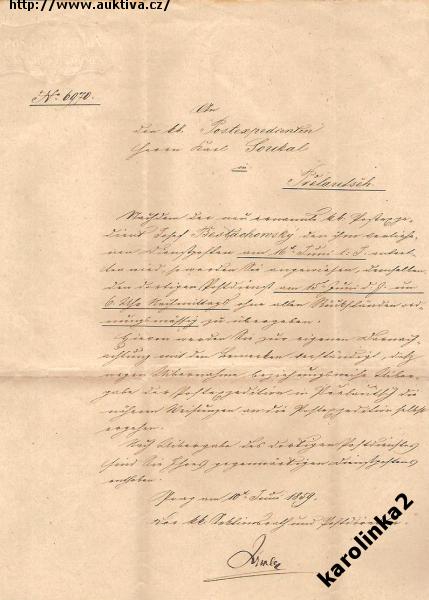 http://www.auktiva.cz/
No 6970.
An
den kk. Postexpedienten
Herrn Karl Soukal
in
Přelautsch.
Nachdem der neu ernannte kk. Postexpe-
dient Josef den ihm verliehe-
nen Dienstposten am 16t. Juni l. J. antre-
ten wird, so werden Sie angewiesen, demselben
den dortigen Postdienst am 15. Juni d. J. um
6 Uhr Nachmittags ohne allen Rückständen ord-
nungsmässig zu übergeben.
Hievon werden Sie zur eigenen Darnach-
achtung mit dem Bemerken verständigt, daß
wegen Übernahme beziehungsweise Über-
gabe der Postexpedition in Přelautsch die
näheren Weisungen an die Postexpedition selbst
ergehen.
Nach Übergabe des dortigen Postdienstes
sind Sie Ihres gegenwärtigen Dienstpostens
enthoben.
Prag am 10t. Juni 1859.
Der kk. Sektionsrath und Postdirektor.
karolinka2